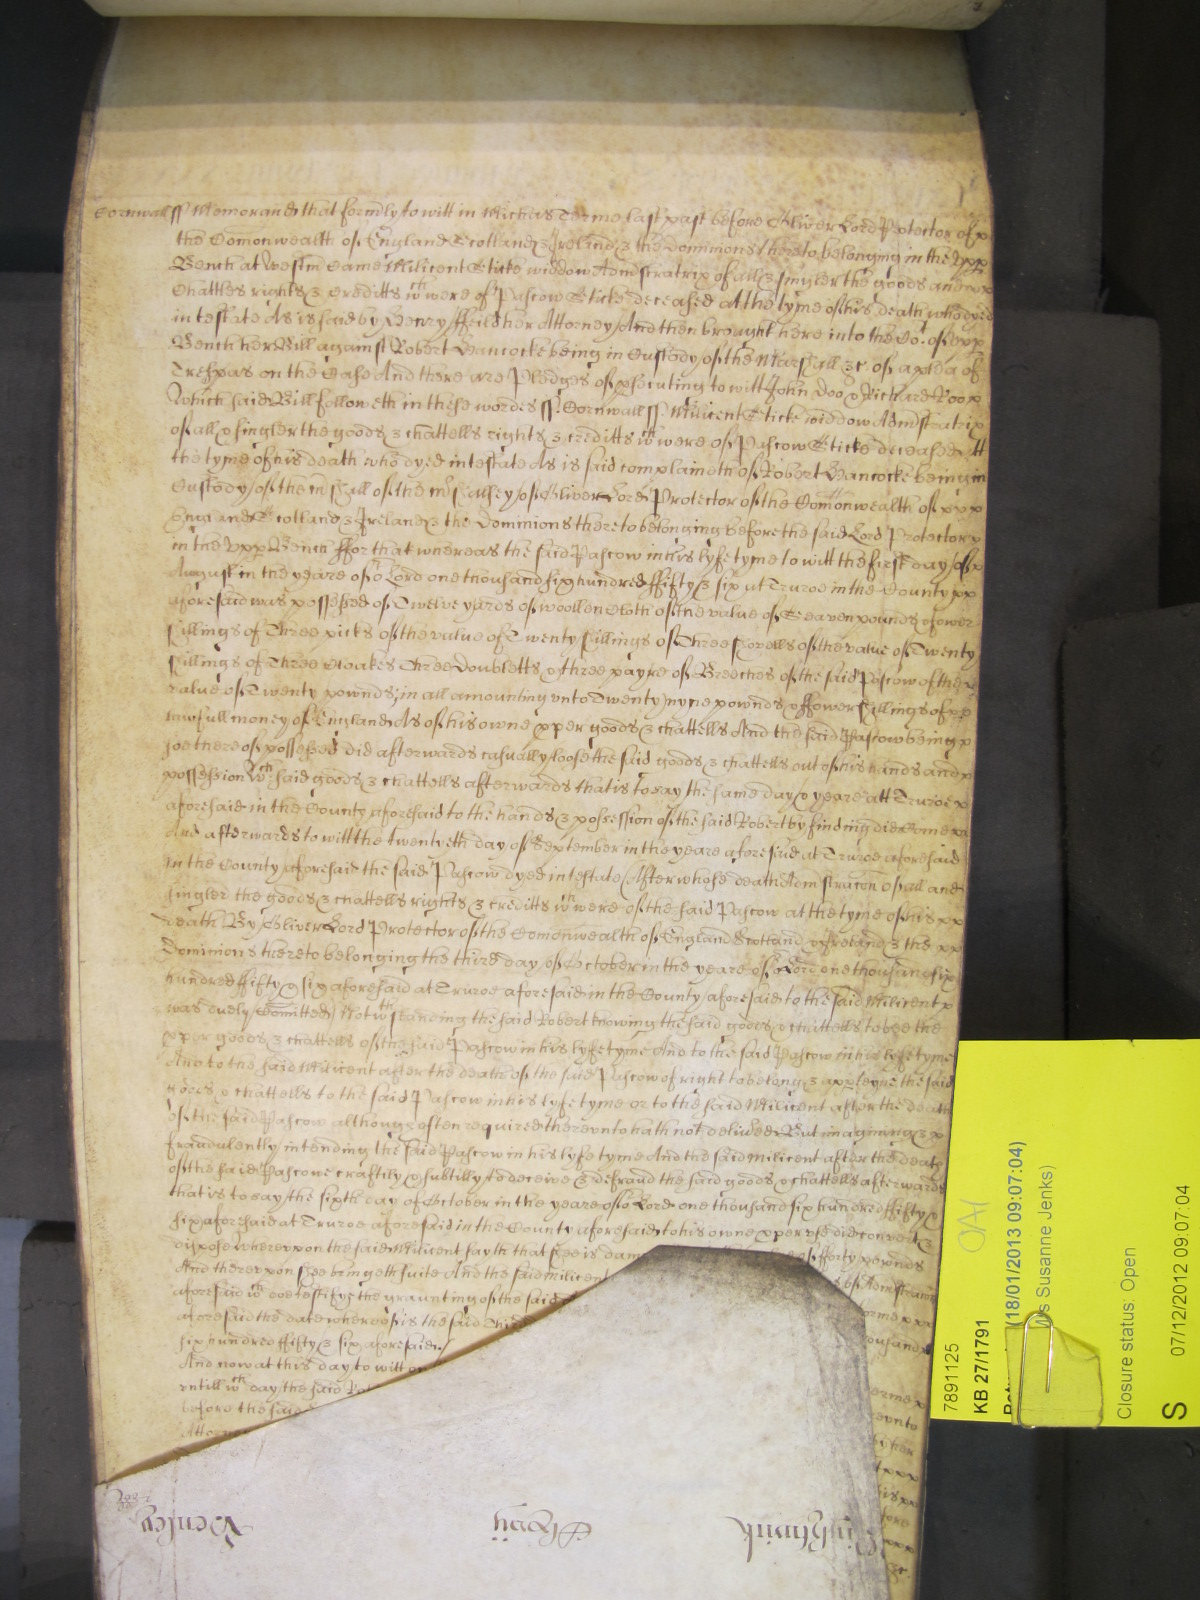 Cornwall ss Memorand that formly to witt in Michas Terme last past before Oliver Lord Protector of x
the Comonwealth of England Scotland & Ireland & the Dominions thereto belonging in the Upp
Bench at Westm Came Milicent Sticke widdow Admstratrix of all & singler the goods and xx
Chattles rights & Creditts wch were of Pascow Sticke deceased at the tyme of his death who dyed
intestate As is said by Henry ffeild her Attorney And then brought here into the Co. of Upp
Bench her Bill against Robert Hancocke being in Custody of the Marshall &c of a plea of
Trespas on the Case And there are Pledges of psecuting to witt John Doo & Richard Roo x
Which said Bill followeth in these wordes ss. Cornwall ss. Milicent Sticke widdow Admstratrix
of all & singler the goods & chattells rights & creditts wch were of Pascow Sticke deceased Att
the tyme of his death who dyed intestate As is said complaineth of Robert Hancocke being in
Custody of the mshall of the mshalsey of Oliver Lord Protector of the Comonwealth of xxx
England Scotland & Ireland & the Dominions thereto belonging before the said Lord Protector x
in the Upp Bench ffor that whereas the said Pascow in his lyfe tyme to witt the first day of x
August in the yeare of or Lord one thousand six hundred ffifty & six at Truroe in the County xx
aforesaid was possessed of Twelve yards of woollen Cloth of the value of Seaven pounds & fower
shillings of Three picks of the value of Twenty shillings of Three shovells of the value of Twenty
shillings of Three Cloakes Three Doubletts & three payre of Breeches of the said Pascow of the x
value of Twenty pownds; in all amounting unto Twenty nyne pownds & ffower shillings of xx
lawfull money of England As of his owne pper goods & chattells And the said Pascow being x
soe thereof possessed did afterwards casually loose the said goods & chattells out of his hands and x
possession Wch said goods & chattells afterwards that is to say the same day & yeare att Truroe x
aforesaid in the County aforesaid to the hands & possession of the said Robert by finding did Come xx
And afterwards to witt the twentyeth day of September in the yeare aforesaid at Truroe aforesaid
in the County aforesaid the said Pascow dyed intestate After whose death Admstracon of all and
singler the goods & chattells rights & creditts wch were of the said Pascow at the tyme of his xx
death By Oliver Lord Protector of the Comonwealth of England Scotland & Ireland & the xx
Dominions thereto belonging the third day of October in the yeare of or Lord one thousand six
hundred ffifty & six aforesaid at Truroe aforesaid in the County aforesaid to the said Milicent x
was duely Comitted Notwthstanding the said Robert knowing the said goods & chattells to bee the
pper goods & chattells of the said Pascow in his lyfe tyme And to the said Pascow in his lyfe tyme
And to the said Milicent after the death of the said Pascow of right to belong & apperteyne the said
goods & chattells to the said Pascow in his lyfe tyme or to the said Milicent after the death
of the said Pascow although often required thereunto hath not delived But imagining & x
fraudulently intending the said Pascow in his lyfe tyme And the said Milicent after the death
of the said Pascowe craftily & subtilly to deceive & defraud the said goods & chattells afterwards
that is to say the sixth day of October in the yeare of or Lord one thousand six hundred ffifty &
six aforesaid at Truroe aforesaid in the County aforesaid to his owne pper use did convert &
dispose whereupon the said Milicent sayth that shee is dam of fforty pownds
And thereupon shee bringeth suite And the said Milicent of Admstracon
aforesaid wch testifye the graunting of the said
aforesaid the date whereof is the said third
six hundred ffifty & six aforesaid thousand
And now at this day to witt
untill wch day the said Ro
before the said
Attorney
Henley
Lightwick
7891125
KB 27/1791
(18/01/2013 09:07:04)
Susanne Jenks)
Closure status: Open
S
07/12/2012 09:07:04